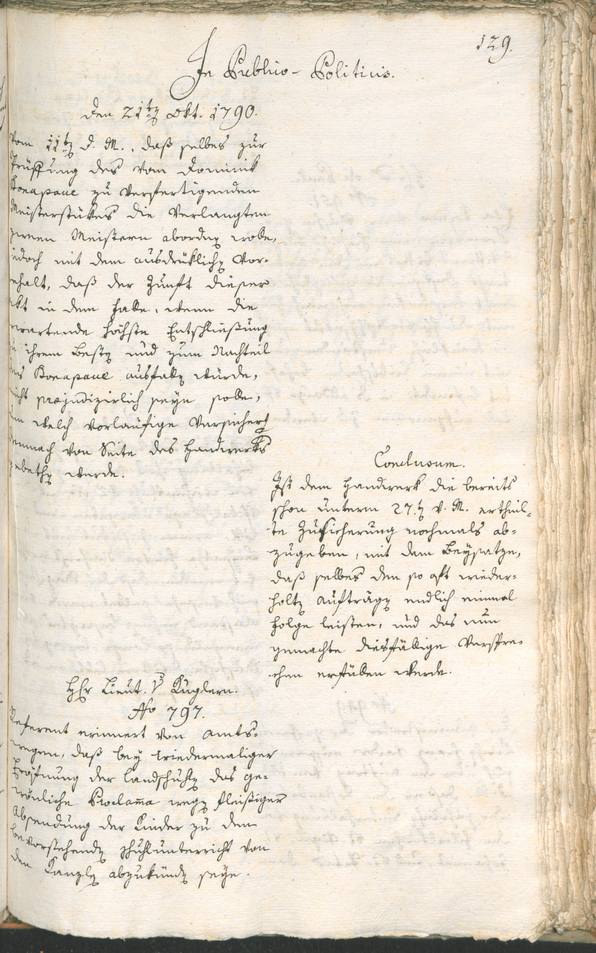 129.
In Publico-Politicis.
den 21ten Okt. 1790.
vom 11ten d. M., daß selbes zur
Prüffung des vom Dominik
Bonapace zu verfertigenden
Meisterstükes die Verlangten
zween Meistern abordnen wobe,
jedoch mit dem ausdrüklichen Vor-
behalt, daß der Zunft dieser
Akt in dem Falle, wenn die
erwartende höchste Entschließung
zu ihrem Besten und zum Nachteil
des Bonapace ausfallen würde,
nicht präjudizirlich seyn solle,
um welch vorläufige Versicherung
demnach von Seite des Handwerks
gebethen werde.
Conclusum.
Ist dem Handwerk die bereits
schon unterm 27ten v. M. ertheil-
te Zusicherung nochmals ab-
zugeben, mit dem Beysatze,
daß selbes den so oft wieder-
holten Aufträgen endlich einmal
Folge leisten, und das nun
gemachte diesfällige Verspre-
chen erfüllen werde.
Hr Lieut. v Kuglern.
No 797.
Referent erinnert von Amts-
wegen, daß bey wiedermaliger
Eröfnung der Landschulen das ge-
wöhnliche Proclama wegen fleißiger
Absendung der Kinder zu dem
bevorstehenden Schulunterricht von
den Kanzlen abzukünden seye.